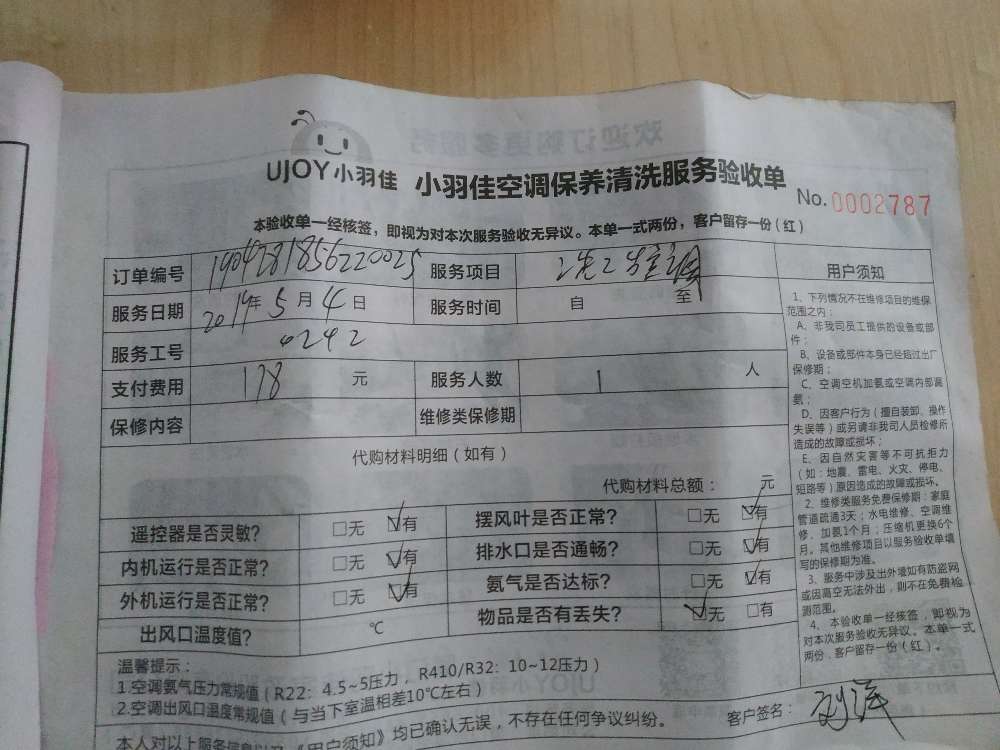 UJOY小羽佳 小羽佳空调保养清洗服务验收单
No. 0002787
本验收单一经核签，即视为对本次服务验收无异议。本单一式两份，客户留存一份（红）
订单编号 1904281856220025 服务项目
服务日期 2019年5月4日 服务时间 自 至
服务工号 0242
支付费用 178 元 服务人数 1 人
保修内容 维修类保修期
代购材料明细（如有）
代购材料总额： 元
遥控器是否灵敏？ □无 ☑有 摆风叶是否正常？ □无 ☑有
内机运行是否正常？ □无 ☑有 排水口是否通畅？ □无 ☑有
外机运行是否正常？ □无 ☑有 氨气是否达标？ □无 ☑有
出风口温度值？ ℃ 物品是否有丢失？ ☑无 □有
温馨提示：
1.空调氨气压力常规值（R22：4.5~5压力，R410/R32：10~12压力）
2.空调出风口温度常规值（与当下室温相差10℃左右）
本人对以上服务信息以及《用户须知》均已确认无误，不存在任何争议纠纷。
客户签名：
用户须知
1、下列情况不在维修项目的维保
范围之内：
A、非我司员工提供的设备或部
件；
B、设备或部件本身已经超过出厂
保修期；
C、空调空机加氨或空调内部漏
氨；
D、因客户行为（擅自装卸、操作
失误等）或另请非我司人员检修所
造成的故障或损坏；
E、因自然灾害等不可抗拒力
（如：地震、雷电、火灾、停电、
短路等）原因造成的故障或损坏。
2、维修类服务免费保修期：家庭
管道疏通3天；水电维修、空调维
修、加氨1个月；压缩机更换6个
月。其他维修项目以服务验收单填
写的保修期为准。
3、服务中涉及出外墙如有防盗网
或因高空无法外出，则不在免费检
测范围。
4、本验收单一经核签，即视为
对本次服务验收无异议。本单一式
两份，客户留存一份（红）。